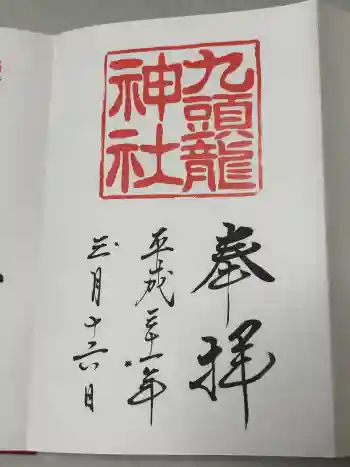 九頭龍
神社
奉拝
平成三十一年
三月十六日